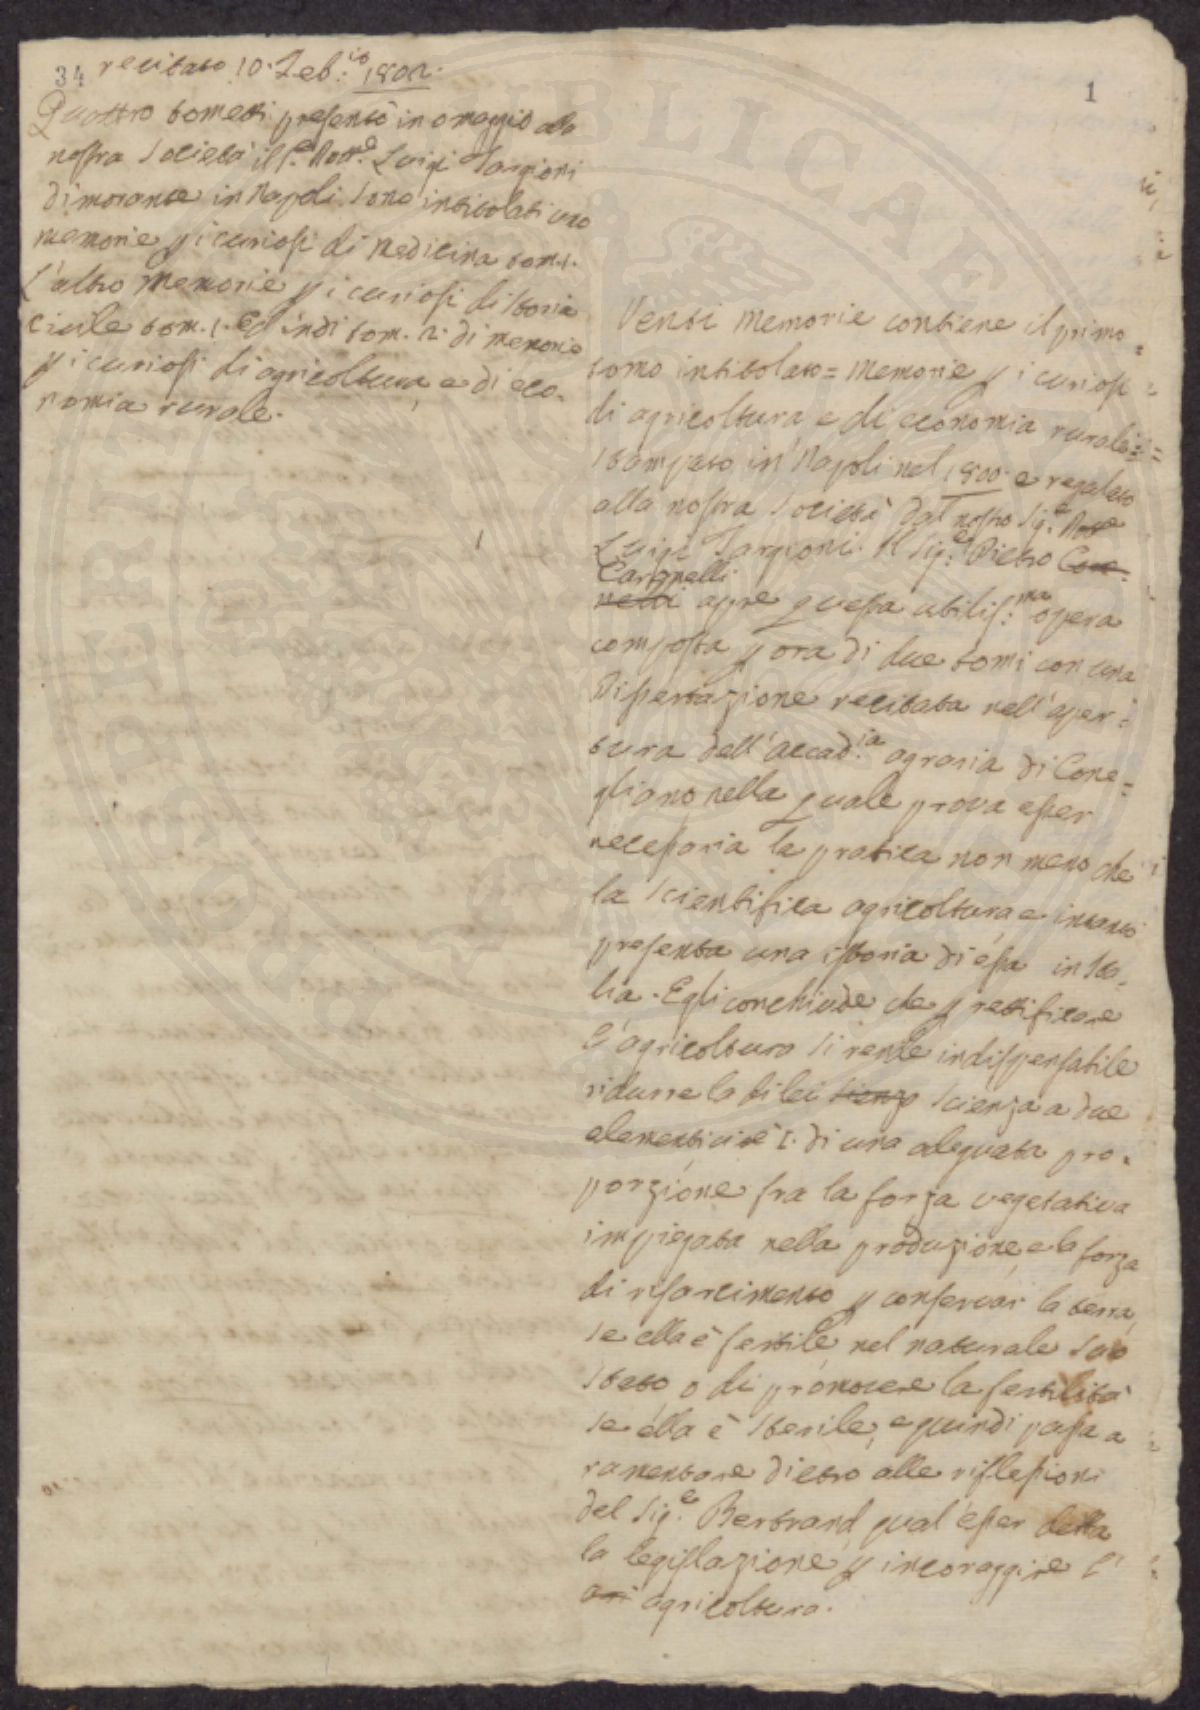 34 recitato 10. Feb:io 1802.
Quattro tometti presentò in omaggio alla
nostra Società il S.e Dott.e Luigi Targioni
dimorante in Napoli. Sono intitolati uno
memorie p i curiosi di Medicina tom. 1.
L'altro Memorie p i curiosi di Storia
civile tom. 1. Ed indi tom. 2. di memorie
p i curiosi di agricoltura, e di eco-
nomia rurale.
1
Venti Memorie contiene il primo
tomo intitolato = Memorie p i curiosi
di agricoltura e di economia rurale =
stampato in Napoli nel 1800. e regalato
alla nostra Società dal nostro Sig.e Dott.e
Luigi Targioni. Il Sig.e Pietro Core-
Caronelli
nelli apre questa utilis:ma opera
composta p ora di due tomi con una
Dissertazione recitata nell'aper=
tura dell'Accad:ia agraria di Cone=
gliano nella quale prova esser
necessaria la pratica non meno che
la scientifica agricoltura, e intanto
presenta una istoria di essa in Ita-
lia. Egli conchiude che p rettificare
l'agricoltura si rende indispensabile
ridurre la di lei sienza scienza a due
elementi cioè 1. di una adeguata pro-
porzione fra la forza vegetativa
impiegata nella produzione, e la forza
di risarcimento p conservar la terra,
se ella è fertile, nel naturale suo
stato, o di promovere la fertilità
se ella è sterile, e quindi passa a
ramentare dietro alle riflessioni
del Sig.e Bertrand qual'esser debba
la legislazione p incoraggire l'
ari agricoltura.